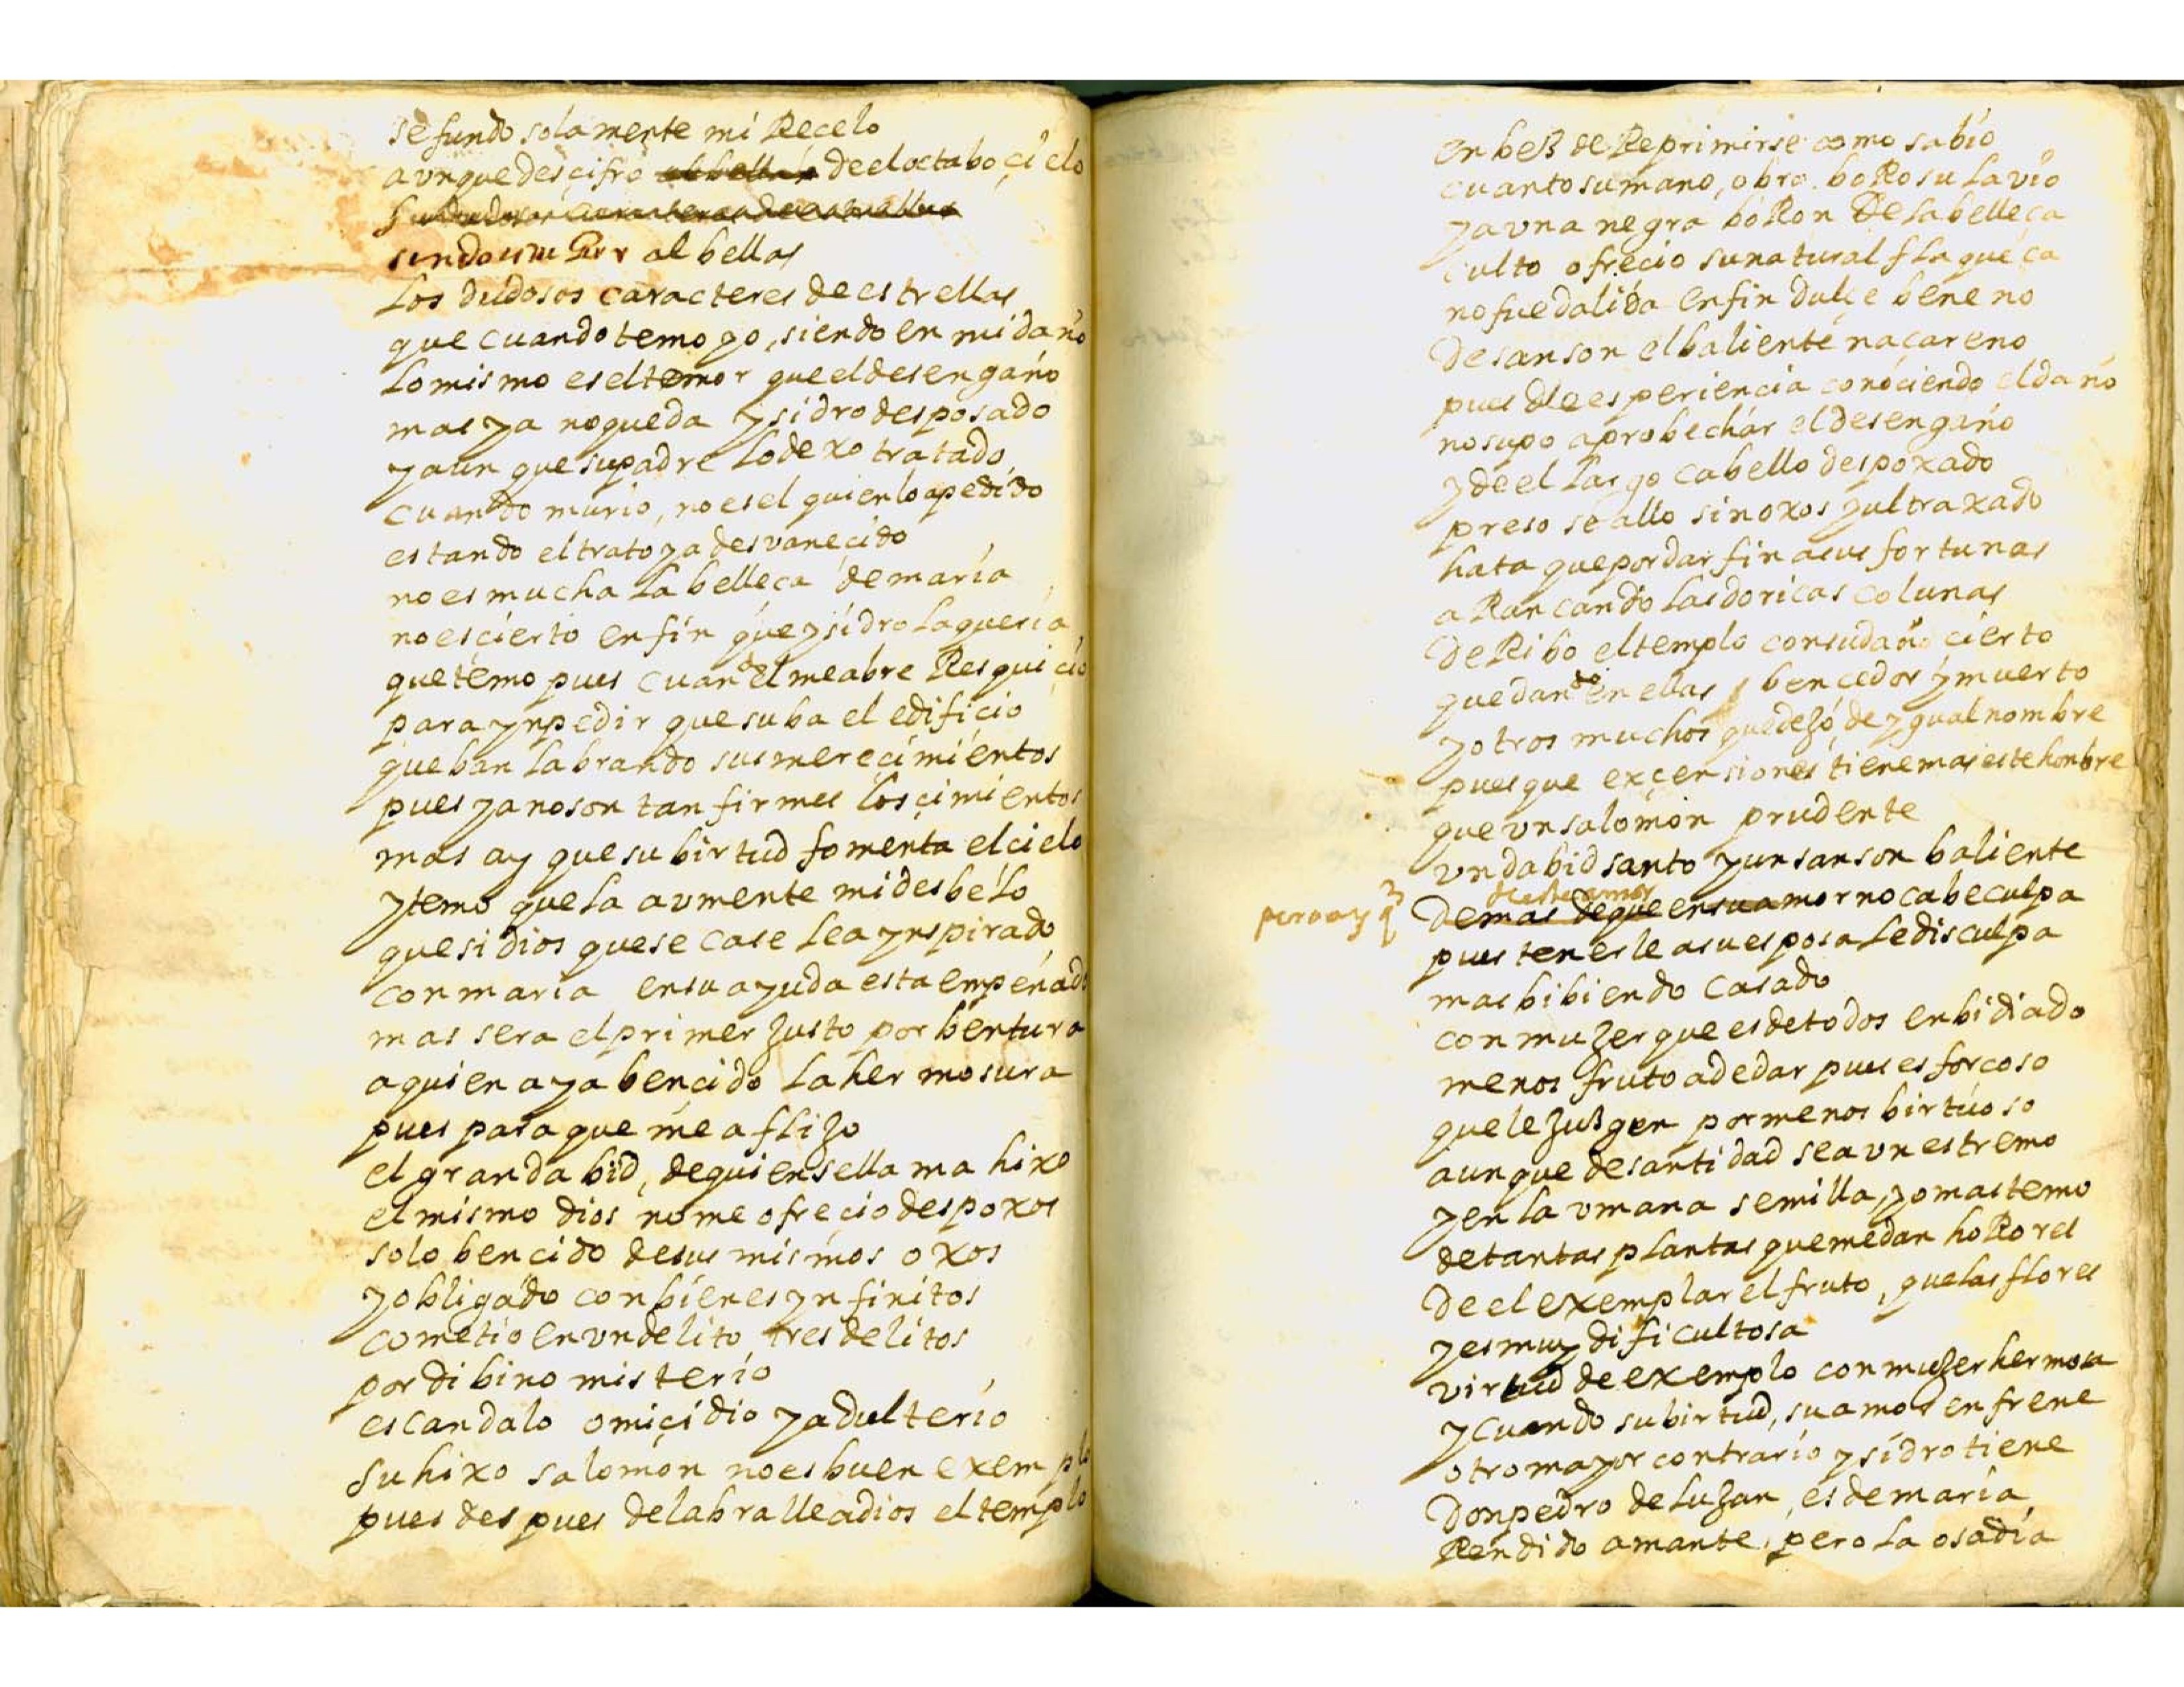 se fundo solamente mi Recelo
aunque desçifro deel octabo çielo
al bellas
los dudosos caracteres de estrellas
que cuando temo yo, siendo en mi daño
lo mismo es el temor que el desengaño
mas ya no queda ysidro desposado
y aun que su padre lo dexo tratado
cuando murio, no es el quien lo a pedido
estando el trato ya desvaneçido
no es mucha la belleça de maria
no es cierto en fin que ysidro la queria
que temo pues cuando el me abre Resquicio
para ynpedir que suba el edificio
que ban labrando sus mereçimientos
pues ya no son tan firmes los çimientos
mas ay que su birtud fomenta el cielo
y temo que la aumente mi desbelo
que si dios que se case lea ynspirado
con maria en su ayuda esta empeñado
mas sera el primer justo por bentura
a quien aya bencido la hermosura
pues para que me aflijo
el gran dabid, de quien se llama hixo
el mismo dios no me ofrecio despoxos
solo bencido de sus mismos oxos
y obligado con bienes ynfinitos
cometio en un delito tres delitos
por dibino misterio
escandalo omiçidio y adulterio
su hixo salomon no es buen exemplo
pues despues de labralle a dios el templo
en beß de Reprimirse como sabio
cuanto su mano, obro. boRo su lavio
y a una negra boRon de la belleça
culto ofrecio su natural flaqueça
no fue dalida en fin dulçe beneno
de sanson el baliente naçareno
pues de esperiencia conociendo el daño
no supo aprobechar el desengaño
y de el largo cabello despoxado
preso se allo sin oxos y ultraxado
hata que por dar fin a sus fortunas
aRancando las doricas colunas
deRibo el templo con su daño cierto
quedando en ellas bencedor y muerto
y otros muchos que dejo, de ygual nombre
pues que exçensiones tiene mas este honbre
que un salomon prudente
un dabid santo y un sanson baliente
de su amor
pero ay q
demas de que en su amor no cabe culpa
pues tenerle a su esposa le disculpa
mas bibiendo casado
con mujer que es de todos enbidiado
menos fruto a de dar pues es forcoso
que le juzgen por menos birtuoso
aunque de santidad sea un estremo
y en la umana semilla, yo mas temo
de tantas plantas que me dan hoRores
de el exemplar el fruto, que las flores
y es muy dificultosa
virtud de exemplo con mujer hermosa
y cuando su birtud, su amor enfrene
otro mayor contrario ysidro tiene
don pedro de lujan, es de maria
Rendido amante, pero la osadia